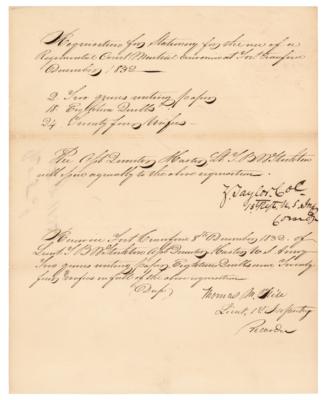 Requisition for Stationery for the use of a
Regimental Court Martial convened at Fort Crawford
December 1832
2 Two quires writing paper
18 Eighteen Quills
24 Twenty four Wafers
The Asst Quarter Master Lt J. B. W. Stockton
will issue agreeably to the above requisition.
Z. Taylor Col
1st Regt U. S. Inf
Comdg
Received Fort Crawford 8th December 1832. of
Lieut J B W Stockton Asst Quarter Master U S Army
Two quires writing paper Eighteen Quills and Twenty
four Wafers in full of the above requisition
(Dup)
Thomas M. Hill
Lieut. 1st Infantry
Recorder